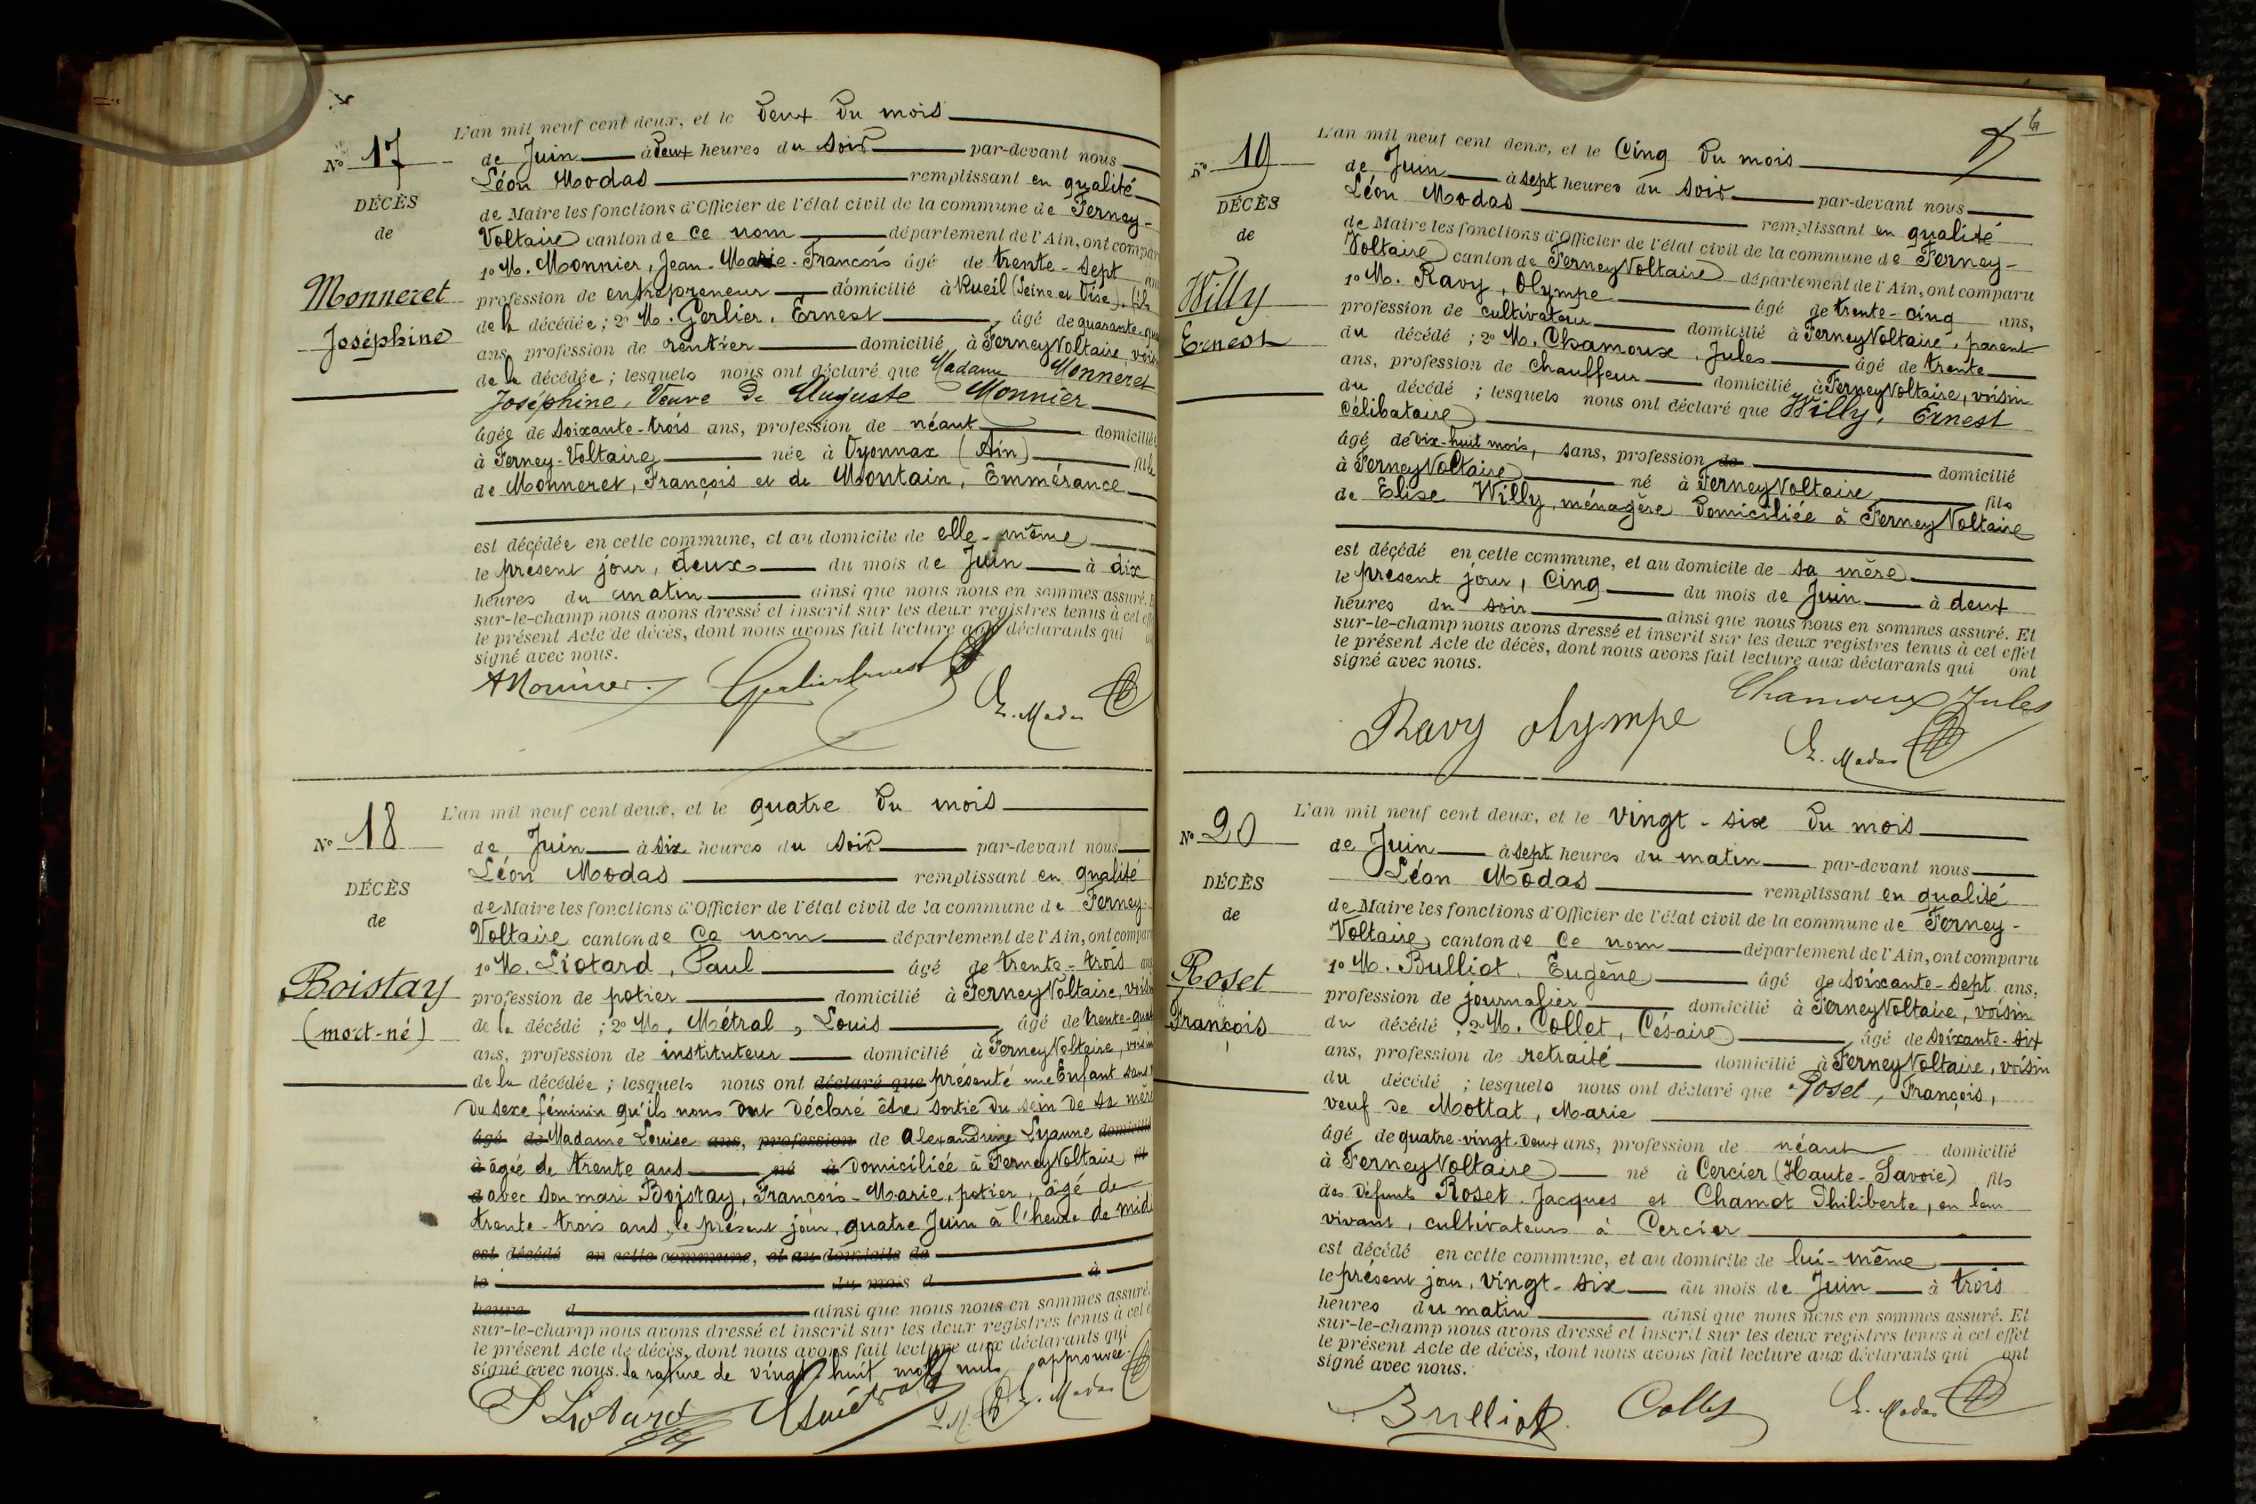 L'an mil neuf cent deux, et le Deux Du mois
No 17
de Juin à Deux heures du Soir par-devant nous
Léon Modas remplissant en qualité
DÉCÈS
de Maire les fonctions d'Officier de l'état civil de la commune de Ferney-
de
Voltaire canton de Ce nom département de l'Ain, ont compar
1o M. Monnier, Jean-Marie-François âgé de trente-sept ans
Monneret
profession de entrepreneur domicilié à Rueil (Seine et Oise), fils
de la décédée; 2o M. Gerlier, Ernest âgé de quarante-
Joséphine
ans, profession de rentier domicilié à Ferney Voltaire, voisin
de la décédée; lesquels nous ont déclaré que Madame Monneret
Joséphine, Veuve De Auguste Monnier
âgée de soixante-trois ans, profession de néant domiciliée
à Ferney-Voltaire née à Oyonnax (Ain) fille
de Monneret, François et de Montain, Emmérance
est décédée en cette commune, et au domicile de elle-même
le présent jour, deux du mois de Juin à dix
heures du matin ainsi que nous nous en sommes assuré. E
sur-le-champ nous avons dressé et inscrit sur les deux registres tenus à cet eff
le présent Acte de décès, dont nous avons fait lecture aux déclarants qui
signé avec nous.
A Monnier. Gerlier Ernest L. Modas
L'an mil neuf cent deux, et le quatre Du mois
No 18
de Juin à six heures du Soir par-devant nous
Léon Modas remplissant en qualité
DÉCÈS
de Maire les fonctions d'Officier de l'état civil de la commune de Ferney-
de
Voltaire canton de Ce nom département de l'Ain, ont compar
1o M. Liotard, Paul âgé de trente-trois ans
Boistay
profession de potier domicilié à Ferney Voltaire, voisin
(mort-né)
de la décédé; 2o M. Métral, Louis âgé de trente-quat
ans, profession de instituteur domicilié à Ferney Voltaire, voisin
de la décédée; lesquels nous ont déclaré que présenté une Enfant sans
Du sexe féminin qu'ils nous ont Déclaré être sortie Du sein De sa mère
âgé de Madame Louise ans, profession de Alexandrine Lyanne domicilié
à âgée de trente ans né à Domiciliée à Ferney Voltaire fil
d avec son mari Boistay, François-Marie, potier, âgé de
trente-trois ans, le présent jour, quatre Juin à l'heure de midi
est décédé en cette commune, et au domicile de
le du mois d à
heure d ainsi que nous nous en sommes assuré.
sur-le-champ nous avons dressé et inscrit sur les deux registres tenus à cet e
le présent Acte de décès, dont nous avons fait lecture aux déclarants qui
signé avec nous. la rature de vingt-huit mots nuls approuvée.
P Liotard L Métral L. M. L. Modas
6
L'an mil neuf cent deux, et le Cinq Du mois
No 19
de Juin à sept heures du Soir par-devant nous
Léon Modas remplissant en qualité
DÉCÈS
de Maire les fonctions d'Officier de l'état civil de la commune de Ferney-
de
Voltaire canton de Ferney Voltaire département de l'Ain, ont comparu
1o M. Ravy, Olympe âgé de trente-cinq ans,
Willy
profession de cultivateur domicilié à Ferney Voltaire, parent
Ernest
du décédé; 2o M. Chamoux, Jules âgé de trente
ans, profession de chauffeur domicilié à Ferney Voltaire, voisin
du décédé; lesquels nous ont déclaré que Willy, Ernest
célibataire
âgé de Dix-huit mois, sans, profession de domicilié
à Ferney Voltaire né à Ferney Voltaire fils
de Elise Willy, ménagère Domiciliée à Ferney Voltaire
est décédé en cette commune, et au domicile de sa mère
le présent jour, cinq du mois de Juin à deux
heures du soir ainsi que nous nous en sommes assuré. Et
sur-le-champ nous avons dressé et inscrit sur les deux registres tenus à cet effet
le présent Acte de décès, dont nous avons fait lecture aux déclarants qui ont
signé avec nous.
Chamoux Jules
Ravy olympe L. Modas
L'an mil neuf cent deux, et le Vingt-six Du mois
No 20
de Juin à sept heures du matin par-devant nous
Léon Modas remplissant en qualité
DÉCÈS
de Maire les fonctions d'Officier de l'état civil de la commune de Ferney-
de
Voltaire canton de Ce nom département de l'Ain, ont comparu
1o M. Bulliot, Eugène âgé de soixante-sept ans,
Roset
profession de journalier domicilié à Ferney Voltaire, voisin
François
du décédé; 2o M. Collet, Césaire âgé de soixante-six
ans, profession de retraité domicilié à Ferney Voltaire, voisin
du décédé; lesquels nous ont déclaré que Roset, François,
veuf de Mottat, Marie
âgé de quatre-vingt-Deux ans, profession de néant domicilié
à Ferney Voltaire né à Cercier (Haute-Savoie) fils
des Défunts Roset Jacques et Chamot Philiberte, en leur
vivant, cultivateurs à Cercier
est décédé en cette commune, et au domicile de lui-même
le présent jour, vingt-six du mois de Juin à trois
heures du matin ainsi que nous nous en sommes assuré. Et
sur-le-champ nous avons dressé et inscrit sur les deux registres tenus à cet effet
le présent Acte de décès, dont nous avons fait lecture aux déclarants qui ont
signé avec nous.
Bulliot. Collet L. Modas